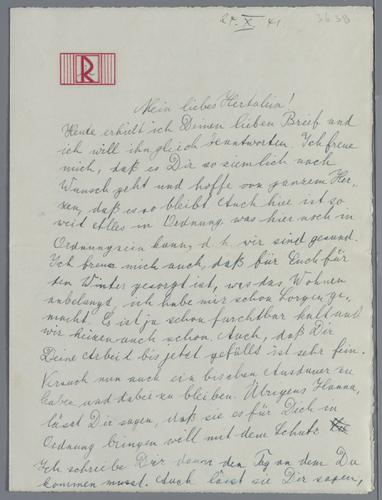 27. X. 41
3638
R
Mein liebes Hertalein!
Heute erhielt ich Deinen lieben Brief und
ich will ihn gleich beantworten. Ich freue
mich, daß es Dir so ziemlich nach
Wunsch geht und hoffe von ganzem Her-
zen, daß es so bleibt. Auch hier ist so
weit Alles in Ordnung, was hier noch in
Ordnung sein kann, d. h. wir sind gesund.
Ich freue mich auch, daß für Euch für
den Winter gesorgt ist, was das Wohnen
anbelangt, ich habe mir schon Sorgen ge-
macht. Es ist ja schon furchtbar kalt und
wir heizen auch schon. Auch, daß Dir
Deine Arbeit bis jetzt gefällt ist sehr fein.
Versuch nun auch ein bischen Ausdauer zu
haben und dabei zu bleiben. Übrigens Hanna,
lässt Dir sagen, daß sie es für Dich in
Ordnung bringen will mit dem Schutz
Ich schreibe Dir dann den Tag an dem Du
kommen musst. Auch lässt sie Dir sagen,